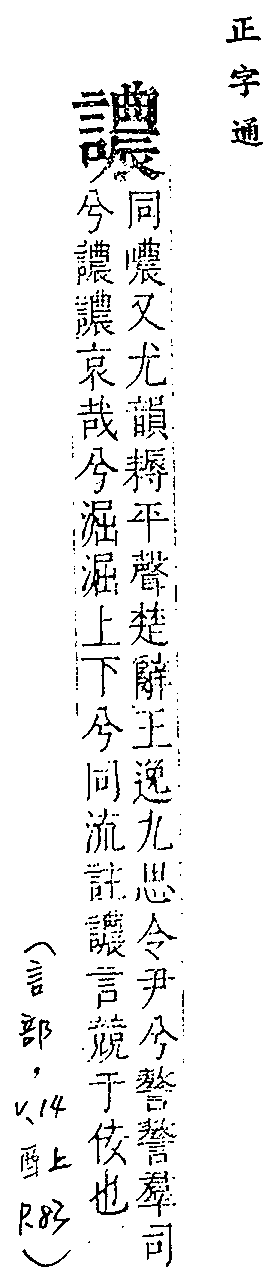 正字通
譨
同噥又尤韻耨平聲楚辭王逸九思令尹兮謷謷羣司
兮譨譨哀哉兮淈淈上下兮同流註譨言競于佞也
(言部，V.14
酉上
P.83)